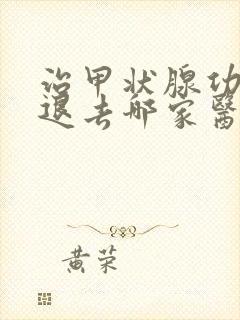 治甲状腺功
退去邮家医
黄荣